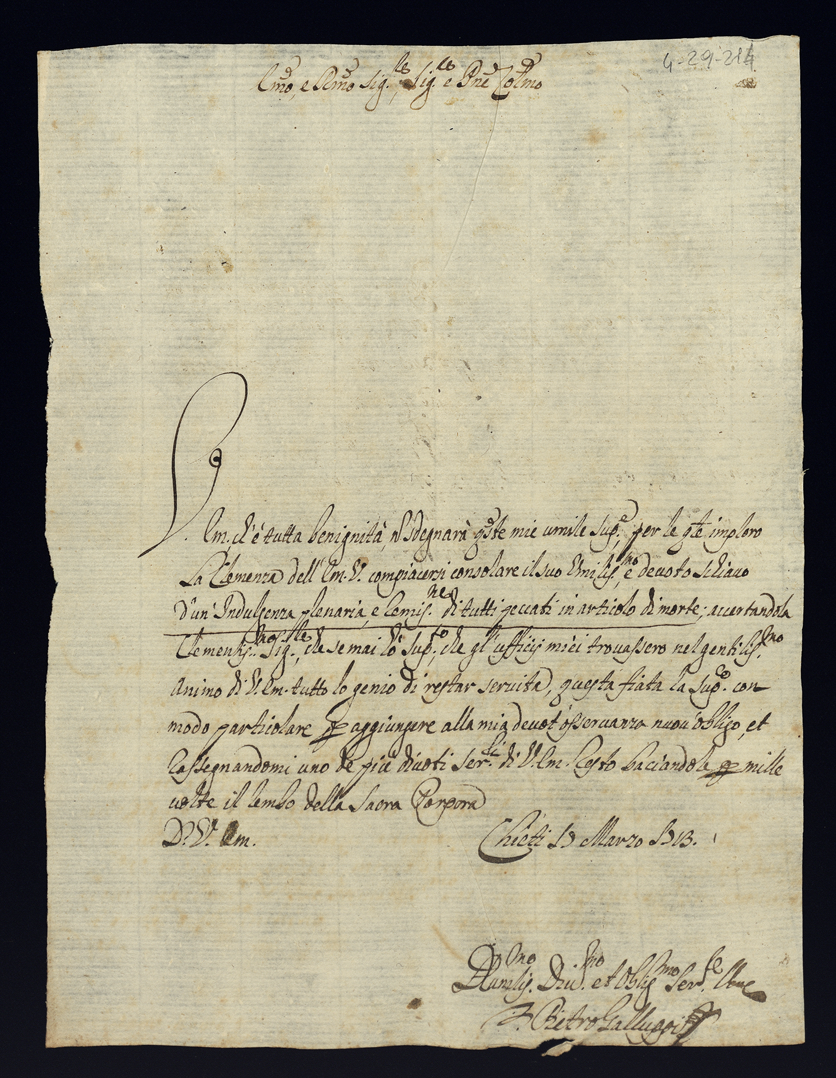 4-29-214
Em̃o, e Rm̃o Sig.re, Sig.re e Pñe Colmo
V. Em. ch'è tutta benignità, nō sdegnarà q̃ste mie umile Sup.e, per le q̃le imploro
La Clemenza dell'Em. V. compiacersi consolare il suo Umilis.mo e devoto schiavo
D'un'Indulgenza plenaria, e Remis.ne di tutti peccati in articolo di morte; accertandola
Clementis.mo Sig.re, che se mai lo Sup.co, che gl'ufficij miei trovassero nel gentilis.mo
Animo di V. Em. tutto lo genio di restar servita, questa fiata la Sup.co con
modo particolare per aggiungere alla mia devot'osservanza nuov'obligo, et
Rassegnandomi uno de più divoti Ser.ri di V. Em. Resto baciandola per mille
volte il lembo della Sacra Porpora
D. V. Em.
Chieti 13 Marzo
Umilis.mo Div.mo et Oblig.mo Ser.re
D. Pietro Galluppi